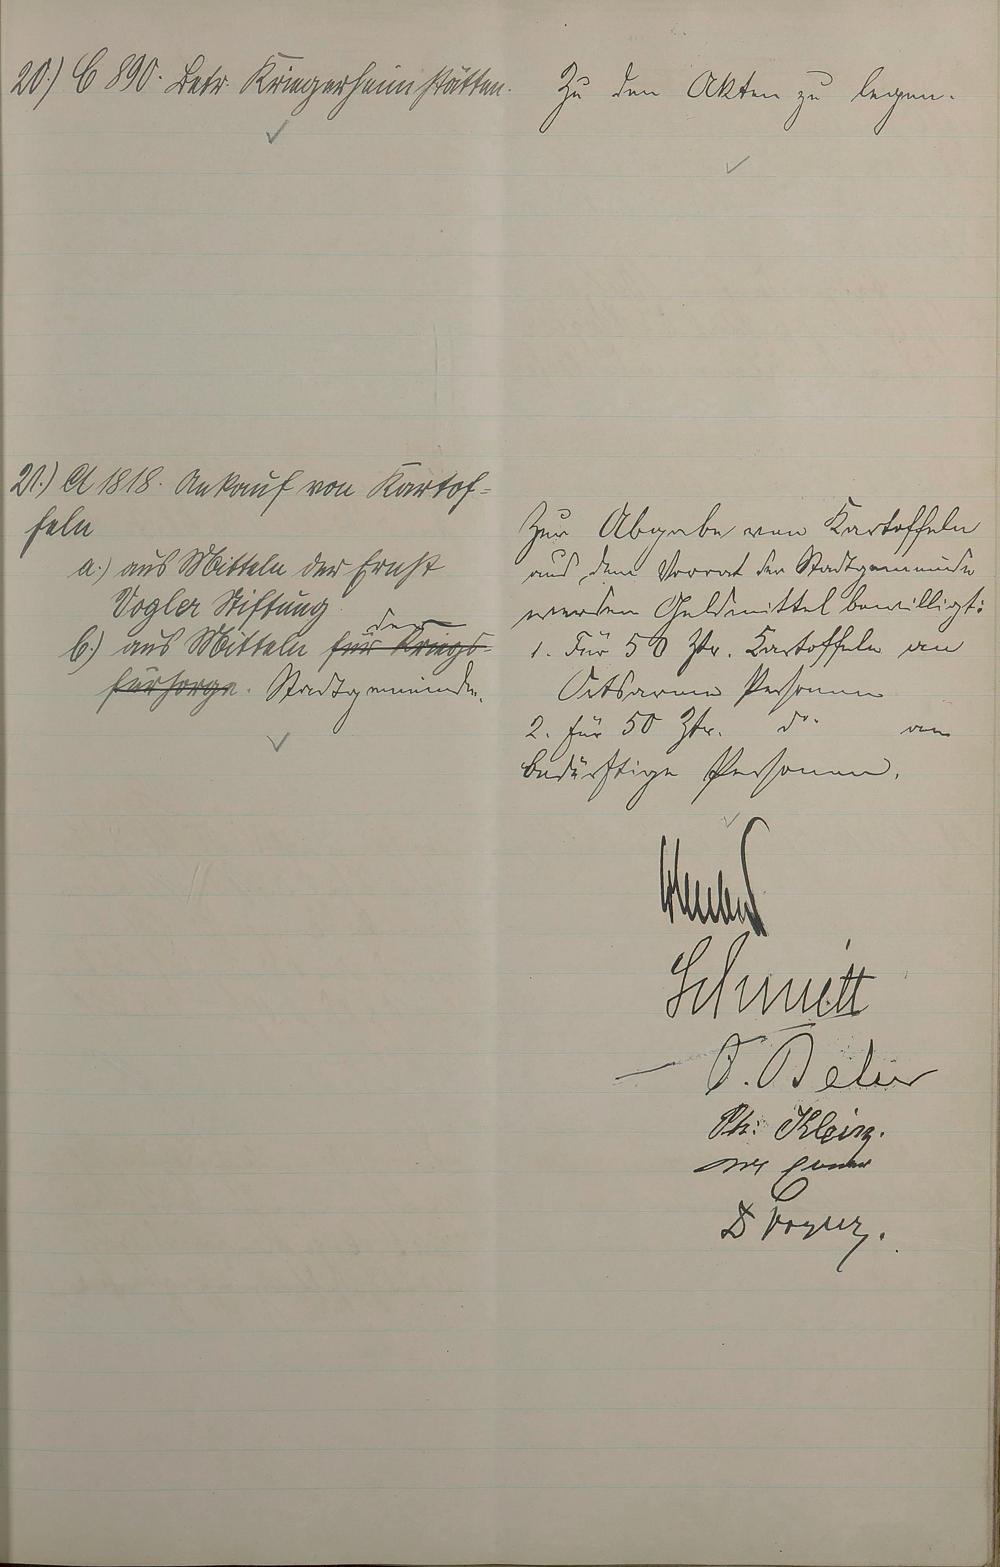 20.) C 890. Betr. Kriegerheimstätten.
Zu den Akten zu legen.
21.) A 1818. Ankauf von Kartof=
feln
a.) aus Mitteln der Ernst
Vogler Stiftung
b.) aus Mitteln für Kriegs-
der
fürsorge. Stadtgemeinde.
Zur Abgabe von Kartoffeln
aus dem Vorrat der Stadtgemeinde
werden Geldmittel bewilligt:
1. Für 50 Ztr. Kartoffeln an
Ortsarme Personen
2. für 50 Ztr. do. an
bedürftige Personen.
Schmitt
Ph. Klein.